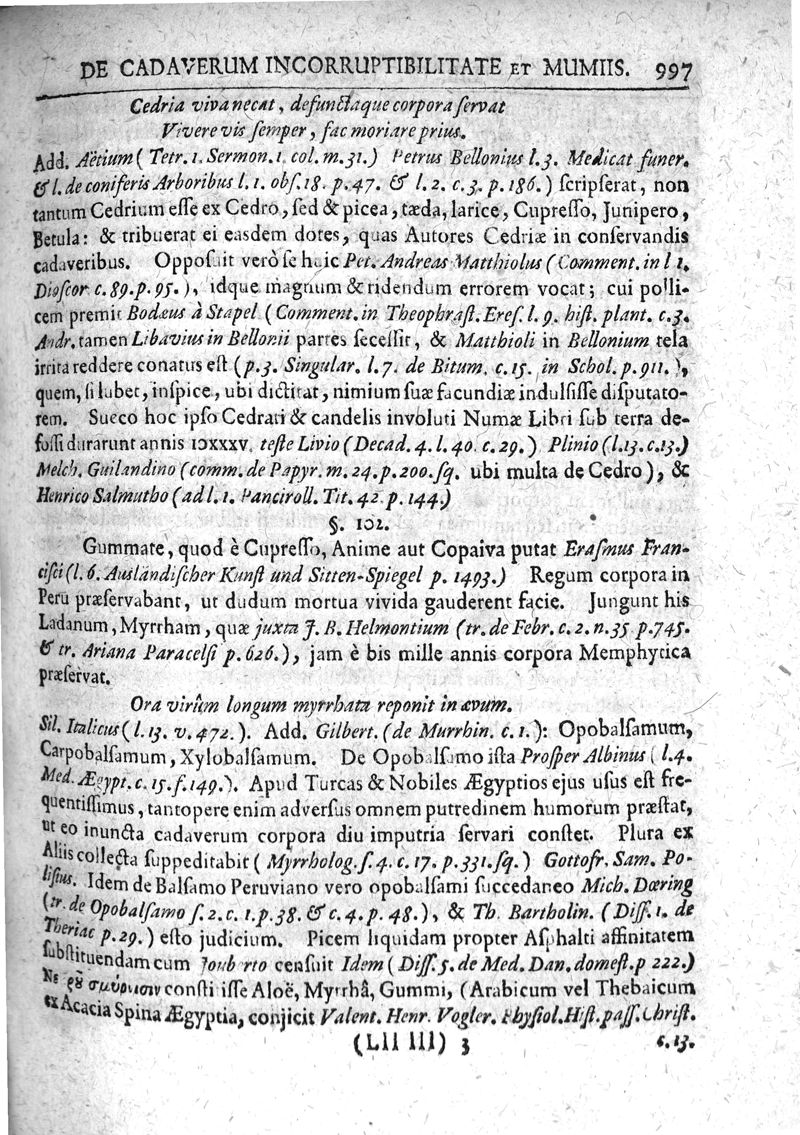 DE CADAVERUM INCORRUPTIBILITATE ET MUMIIS. 997
Cedria viva necat, defunctaque corpora ſervat
Vivere vis ſemper, fac moriare prius.
Add. Aëtium (Tetr. 1. Sermon. 1. col. m. 31.) Petrus Bellonius l. 3. Medicat funer.
& l. de coniferis Arboribus l. 1. obſ. 18. p. 47. & l. 2. c. 3. p. 186.) ſcripſerat, non
tantum Cedrium eſſe ex Cedro, ſed & picea, tæda, larice, Cupreſſo, Junipero,
Betula: & tribuerat ei easdem dotes, quas Autores Cedriæ in conſervandis
cadaveribus. Oppoſuit verò ſe huic Pet. Andreas Matthiolus (Comment. in l 1.
Dioſcor c. 89. p. 95.), idque magnum & ridendum errorem vocat; cui polli-
cem premit Bodæus à Stapel (Comment. in Theophraſt. Ereſ. l. 9. hiſt. plant. c. 3.
Andr. tamen Libavius in Bellonii partes ſeceſſit, & Matthioli in Bellonium tela
irrita reddere conatus eſt (p. 3. Singular. l. 7. de Bitum. c. 15. in Schol. p. 911.),
quem, ſi lubet, inſpice, ubi dictitat, nimium ſuæ facundiæ indulſiſſe diſputato-
rem. Sueco hoc ipſo Cedrati & candelis involuti Numæ Libri ſub terra de-
foſſi durarunt annis IƆXXXV. teſte Livio (Decad. 4. l. 40. c. 29.) Plinio (l. 13. c. 13.)
Melch. Guilandino (comm. de Papyr. m. 24. p. 200. ſq. ubi multa de Cedro), &
Henrico Salmutho (ad l. 1. Panciroll. Tit. 42. p. 144.)
§. 102.
Gummate, quod è Cupreſſo, Anime aut Copaiva putat Eraſmus Fran-
ciſci (l. 6. Ausländiſcher Kunſt und Sitten-Spiegel p. 1493.) Regum corpora in
Peru præſervabant, ut dudum mortua vivida gauderent facie. Jungunt his
Ladanum, Myrrham, quæ juxta J. B. Helmontium (tr. de Febr. c. 2. n. 35 p. 745.
& tr. Ariana Paracelſi p. 626.), jam è bis mille annis corpora Memphytica
præſervat.
Ora virûm longum myrrhata reponit in ævum.
Sil. Italicus (l. 13. v. 472.). Add. Gilbert. (de Murrhin. c. 1.): Opobalſamum,
Carpobalſamum, Xylobalſamum. De Opobalſamo iſta Proſper Albinus (l. 4.
Med. Ægypt. c. 15. f. 149.). Apud Turcas & Nobiles Ægyptios ejus uſus eſt fre-
quentiſſimus, tantopere enim adverſus omnem putredinem humorum præſtat,
ut eo inuncta cadaverum corpora diu imputria ſervari conſtet. Plura ex
Aliis collecta ſuppeditabit (Myrrholog. ſ. 4. c. 17. p. 331. ſq.) Gottofr. Sam. Po-
liſius. Idem de Balſamo Peruviano vero opobalſami ſuccedaneo Mich. Dœring
(tr. de Opobalſamo ſ. 2. c. 1. p. 38. & c. 4. p. 48.), & Th. Bartholin. (Diſſ. 1. de
Theriac p. 29.) eſto judicium. Picem liquidam propter Aſphalti affinitatem
ſubſtituendam cum Joub rto cenſuit Idem (Diſſ. 5. de Med. Dan. domeſt. p 222.)
σμύρνισιν conſti iſſe Aloë, Myrrhâ, Gummi, (Arabicum vel Thebaicum
ex Acacia Spina Ægyptia, conjicit Valent. Henr. Vogler. Phyſiol. Hiſt. paſſ. Chriſt.
(Lll lll) 3 c. 13.